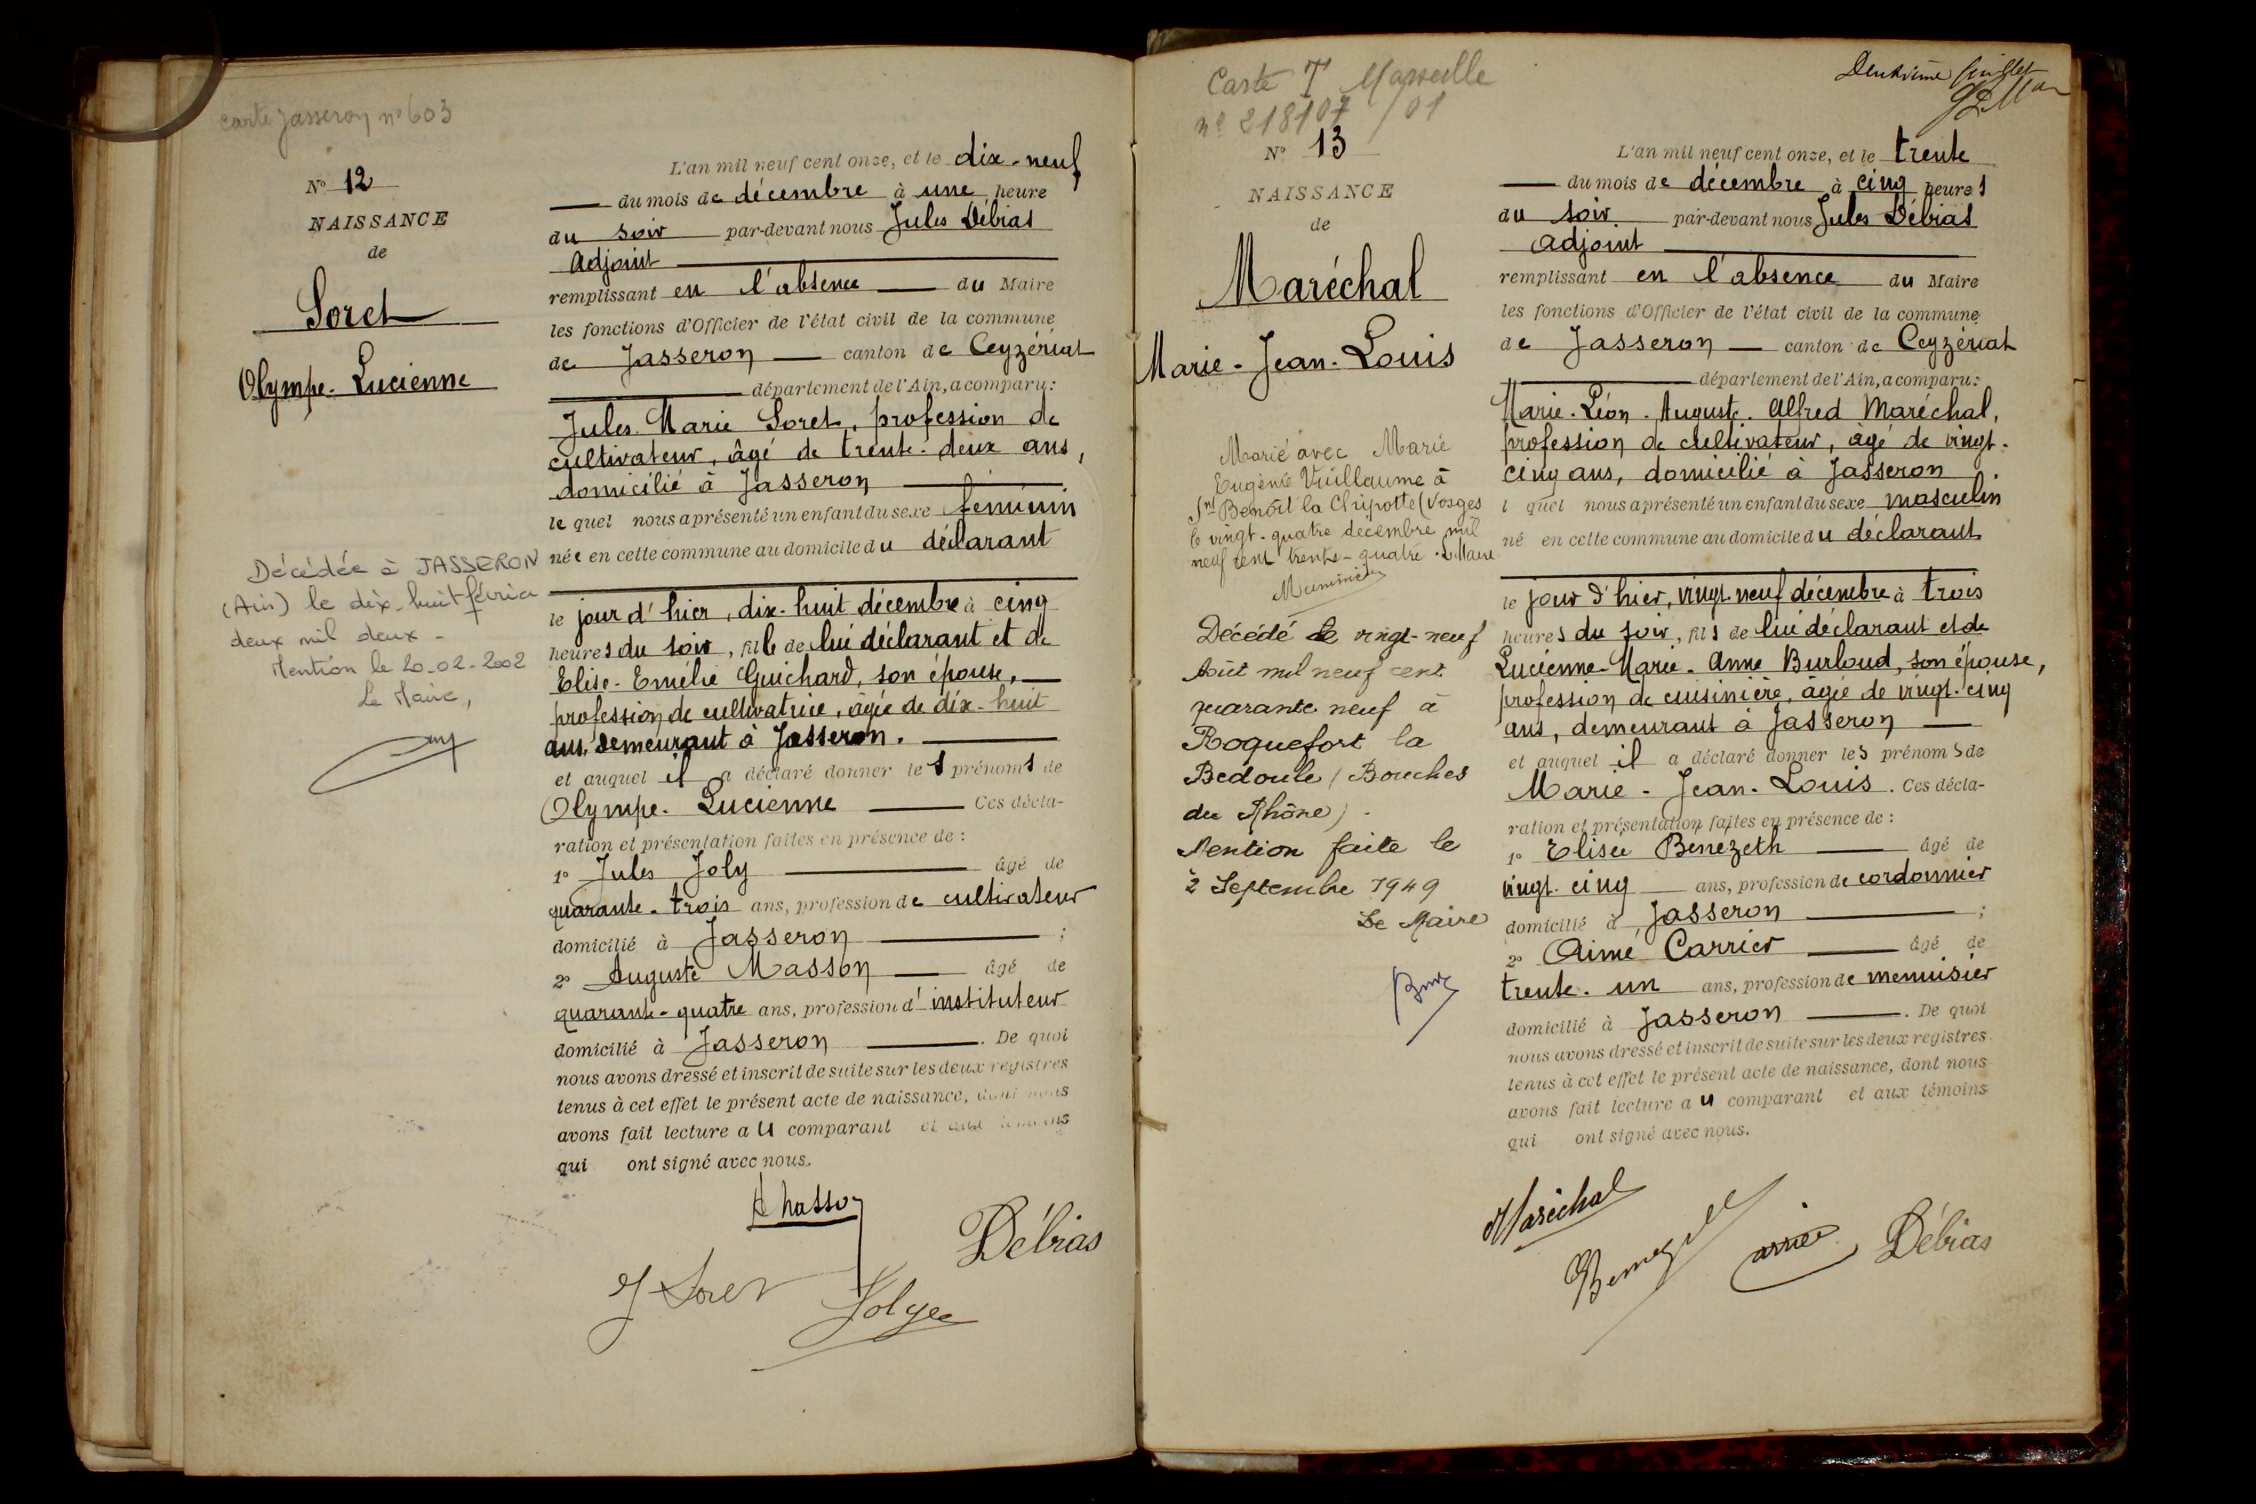 carte Jasseron n° 603
N° 12
NAISSANCE
de
Soret
Olympe-Lucienne
Décédée à JASSERON
(Ain) le dix-huit février
deux mil deux -
Mention le 20-02-2002
Le Maire,
L'an mil neuf cent onze, et le dix-neuf
du mois de décembre à une heure
du soir par-devant nous Jules Débias
Adjoint
remplissant en l'absence du Maire
les fonctions d'Officier de l'état civil de la commune
de Jasseron canton de Ceyzériat
département de l'Ain, a comparu:
Jules Marie Soret, profession de
cultivateur, âgé de trente-deux ans,
domicilié à Jasseron
le quel nous a présenté un enfant du sexe féminin
née en cette commune au domicile du déclarant
le jour d'hier, dix-huit décembre à cinq
heures du soir, fille de lui déclarant et de
Elise-Emélie Guichard, son épouse,
profession de cultivatrice, âgée de dix-huit
ans, demeurant à Jasseron.
et auquel il a déclaré donner les prénoms de
Olympe-Lucienne Ces décla-
ration et présentation faites en présence de :
1° Jules Joly âgé de
quarante-trois ans, profession de cultivateur
domicilié à Jasseron ;
2° Auguste Masson âgé de
quarante-quatre ans, profession d'instituteur
domicilié à Jasseron. De quoi
nous avons dressé et inscrit de suite sur les deux registres
tenus à cet effet le présent acte de naissance, dont nous
avons fait lecture au comparant et aux témoins
qui ont signé avec nous.
A Masson
Débias
J Soret
Joly
Carte T Marseille
n° 218107/01
Deuxième
N° 13
NAISSANCE
de
Maréchal
Marie-Jean-Louis
Marié avec Marie
Eugénie Vuillaume à
Snt Benoît la Chipotte (Vosges
le vingt-quatre décembre mil
neuf cent trente-quatre. Le Maire
Décédé le vingt-neuf
Août mil neuf cent
quarante neuf à
Roquefort la
Bédoule (Bouches
du Rhône).
Mention faite le
2 Septembre 1949
Le Maire
L'an mil neuf cent onze, et le trente
du mois de décembre à cinq heures
du soir par-devant nous Jules Débias
Adjoint
remplissant en l'absence du Maire
les fonctions d'Officier de l'état civil de la commune
de Jasseron canton de Ceyzériat
département de l'Ain, a comparu:
Marie-Léon-Auguste-Alfred Maréchal,
profession de cultivateur, âgé de vingt-
cinq ans, domicilié à Jasseron.
l quel nous a présenté un enfant du sexe masculin
né en cette commune au domicile du déclarant
le jour d'hier, vingt-neuf décembre à trois
heures du soir, fils de lui déclarant et de
Lucienne-Marie-Anne Burloud, son épouse,
profession de cuisinière, âgée de vingt-cinq
ans, demeurant à Jasseron
et auquel il a déclaré donner les prénoms de
Marie-Jean-Louis. Ces décla-
ration et présentation faites en présence de :
1° Elisée Benezeth âgé de
vingt-cinq ans, profession de cordonnier
domicilié à Jasseron ;
2° Aimé Carrier âgé de
trente-un ans, profession de menuisier
domicilié à Jasseron. De quoi
nous avons dressé et inscrit de suite sur les deux registres
tenus à cet effet le présent acte de naissance, dont nous
avons fait lecture au comparant et aux témoins
qui ont signé avec nous.
Maréchal
Débias